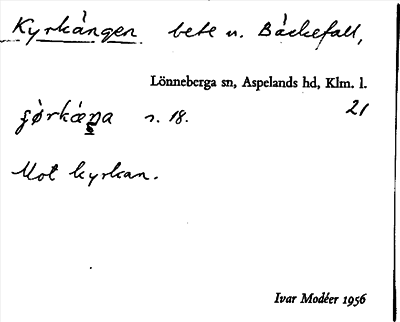 Kyrkängen bete u. Bäckefall,
Lönneberga sn, Aspelands hd, Klm. l.
21
s. 18.
Mot kyrkan.
Ivar Modéer 1956